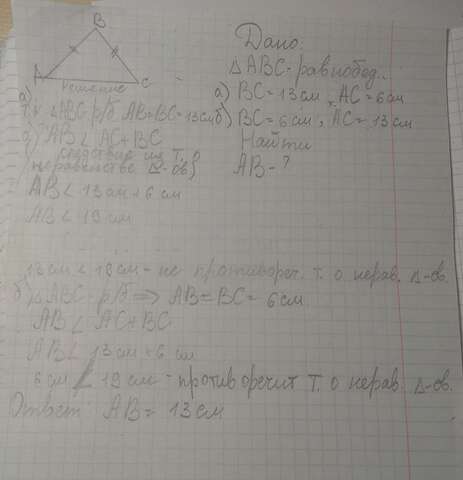 B
A
C
Дано:
△ABC - равнобод..
а) BC = 13 см, AC = 6 см
б) BC = 6 см, AC = 13 см
Найти
AB - ?
Решение
а)
т.к. △ABC - р/б AB = BC = 13 см
AB < AC + BC
следствие из т. о
неравенстве △-ов)
AB < 13 см + 6 см
AB < 19 см
13 см < 19 см - не противореч. т. о нерав. △-ов.
б) △ABC - р/б => AB = BC = 6 см
AB < AC + BC
AB < 13 см + 6 см
6 см < 19 см - противоречит т. о нерав. △-ов.
Ответ AB = 13 см